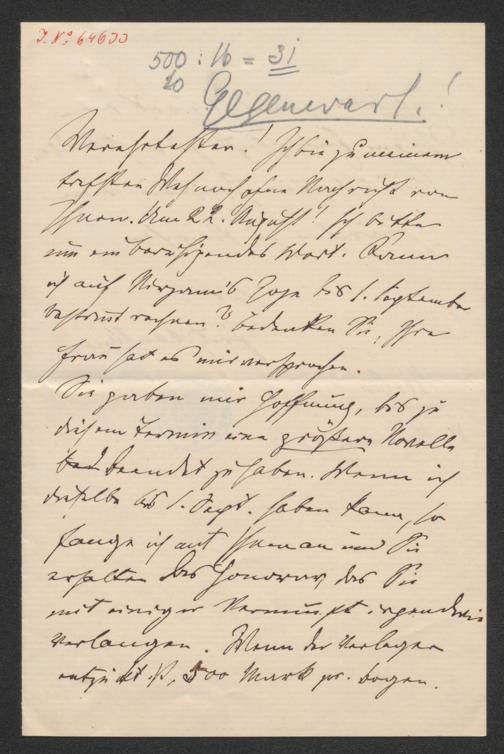 J. No 64633
500 : 16 = 31
20
Gegenwart!
Verehrtester! Ich bin zu meinem
tiefsten Weh noch ohne Nachricht von
Ihnen. Am 22. August! Ich bitte
um ein beruhigendes Wort. Kann
ich auf bis 1. September
bestimmt rechnen? Bedenken Sie, Ihre
Frau hat es mir versprochen.
Sie gaben mir Hoffnung, bis zu
diesem Termin eine größere Novelle
beendet zu haben. Wenn ich
dieselbe bis 1. Sept. haben kann, so
fange ich mit Ihnen an und Sie
erhalten das Honorar, das Sie
mit einiger Vernunft irgendwie
verlangen. Wenn der Verleger
entzückt ist, 500 Mark pr. Bogen.